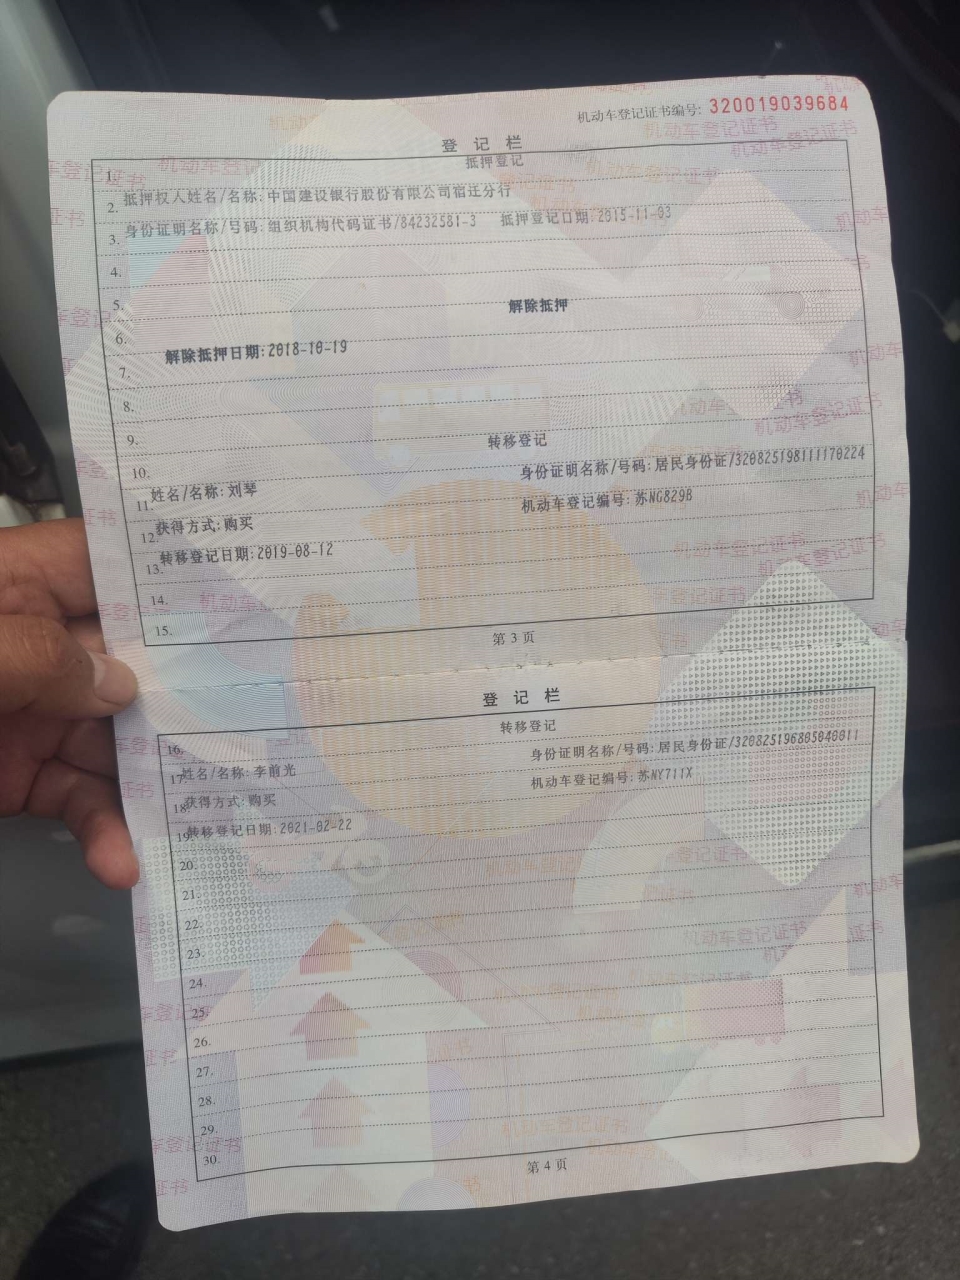 机动车登记证书编号: 320019039684
登 记 栏
抵押登记
1.
2. 抵押权人姓名/名称:中国建设银行股份有限公司宿迁分行
3. 身份证明名称/号码:组织机构代码证书/84232581-3 抵押登记日期:2015-11-03
4.
5.
解除抵押
6.
解除抵押日期:2018-10-19
7.
8.
9.
转移登记
10.
身份证明名称/号码:居民身份证/320825198111170224
11. 姓名/名称:刘琴
机动车登记编号:苏NG829B
12. 获得方式:购买
13. 转移登记日期:2019-08-12
14.
15.
第 3 页
登 记 栏
转移登记
16.
身份证明名称/号码:居民身份证/320825196805040011
17. 姓名/名称:李前光
机动车登记编号:苏NY711X
18. 获得方式:购买
19. 转移登记日期:2021-02-22
20.
21.
22.
23.
24.
25.
26.
27.
28.
29.
30.
第 4 页